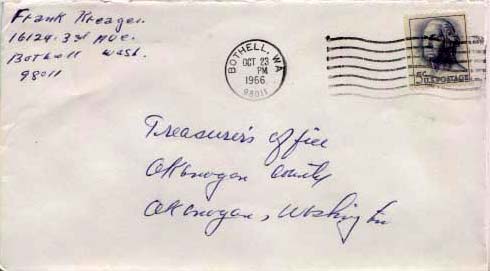 Frank Kreager.
16124-3rd Ave.
Bothell Wash.
98011
BOTHELL, WA
OCT 23
PM
1966
98011
5¢ U.S. POSTAGE
Treasurer's office
Okanogan County
Okanogan, Washington